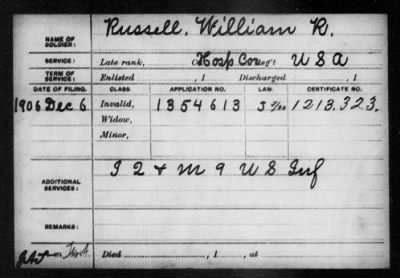 NAME OF SOLDIER: Russell, William R.
SERVICE: Late rank, Hosp Cor Reg't U S A
TERM OF SERVICE: Enlisted , 1 Discharged , 1
DATE OF FILING. CLASS. APPLICATION NO. LAW. CERTIFICATE NO.
1906 Dec 6 Invalid, 1354613 1213.323.
Widow,
Minor,
ADDITIONAL SERVICES: I 2 & M 9 U S Inf
REMARKS:
Died , 1 , at